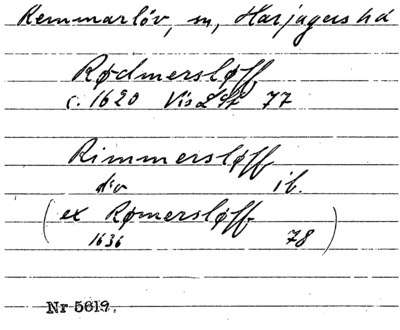 Remmarlöv, sn, Harjagers hd
Rødmersløff
c. 1620 Vis 77
Rimmersløff
div ib.
(ex Rømersløff
1636 78)
Nr 5619.